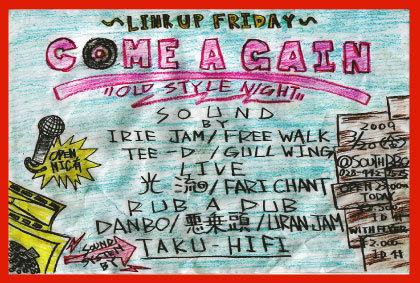 ~LINK UP FRIDAY~
COME A GAIN
"OLD STYLE NIGHT"
SOUND
BY
IRIE JAM/FREE WALK
TEE-D/GULL WING
LIVE
光流/FARI CHANT
RUB A DUB
DANBO/悪乗頭/URAN JAM
TAKU-HIFI
OPEN
MICH
SOUND
SYSTEM
BY
2009
OPEN
TODAY
1D
WITH FLYER
¥2.000
1D